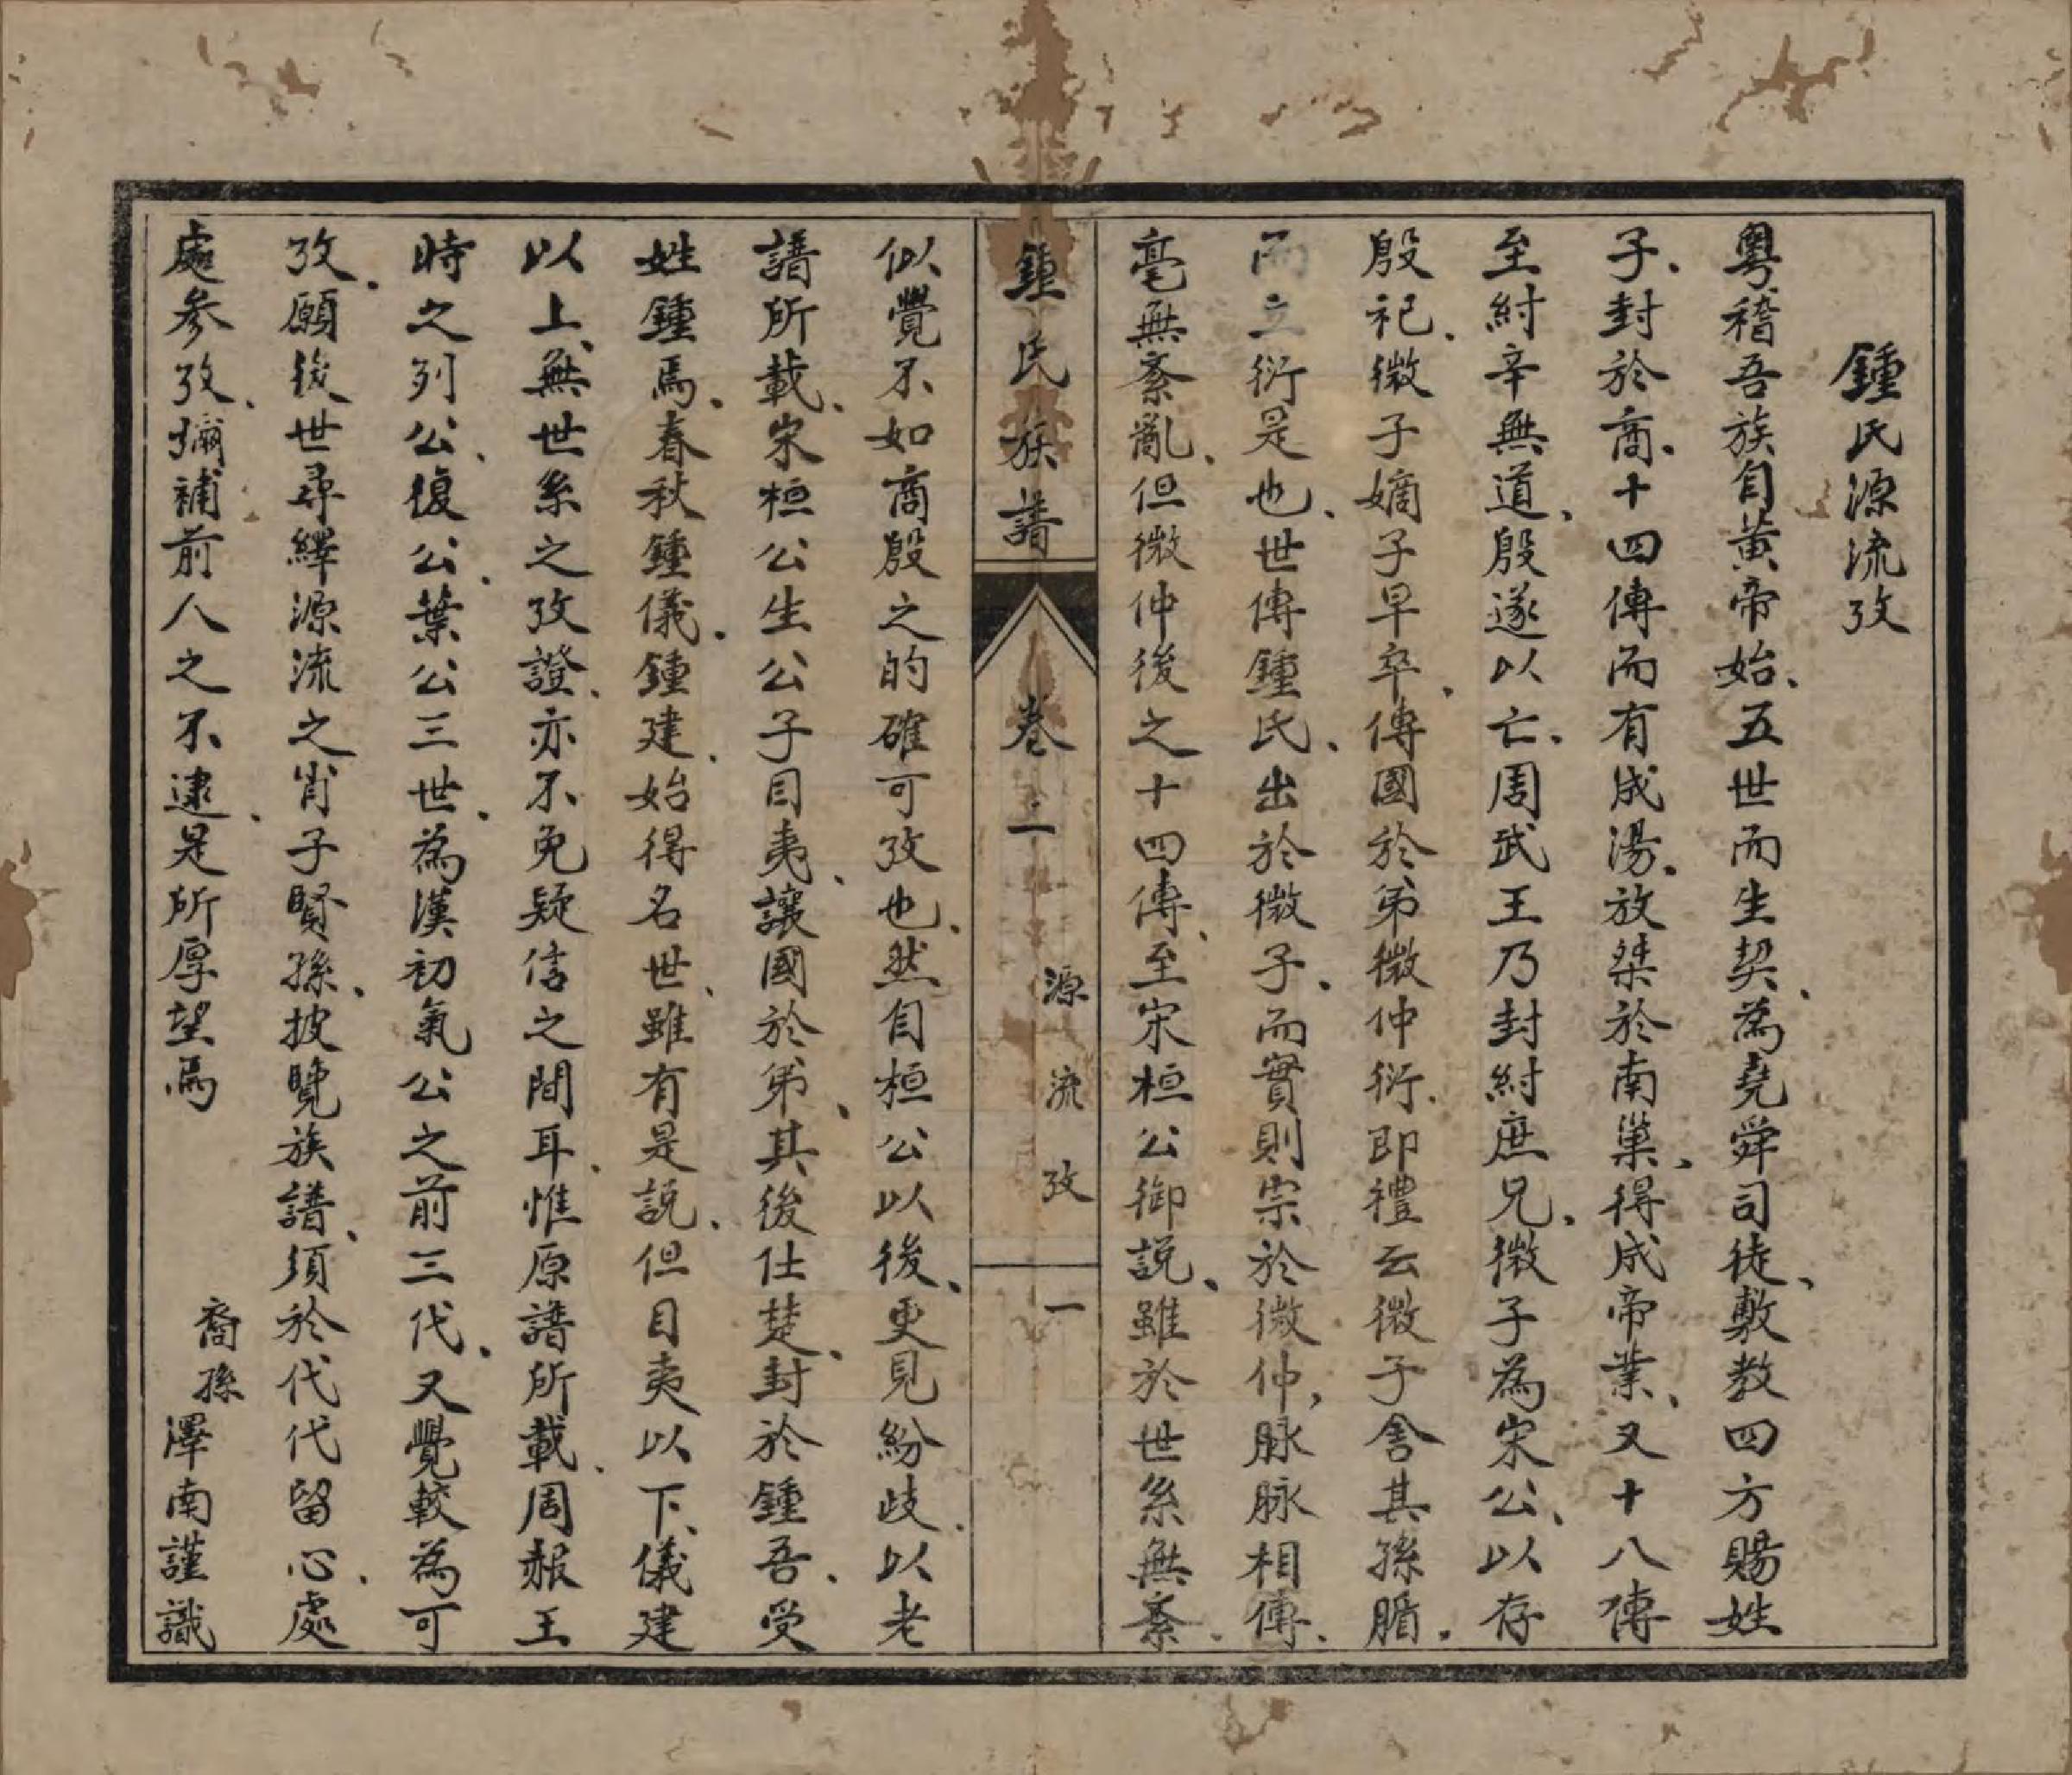 鍾氏源流攷
粵稽吾族自黃帝始、五世而生契、為堯舜司徒、敷教四方賜姓
子、封於商、十四傳而有成湯、放桀於南巢、得成帝業、又十八傳
至紂辛無道、殷遂以亡、周武王乃封紂庶兄、微子為宋公、以存
殷祀、微子嫡子早卒、傳國於弟微仲衍、即禮云微子舍其孫腯、
而立衍是也、世傳鍾氏、出於微子、而實則宗於微仲、脉脉相傳、
毫無紊亂、但微仲後之十四傳、至宋桓公御說、雖於世系無紊、
鍾氏族譜
卷一
源流攷
一
似覺不如商殷之的確可攷也、然自桓公以後、更見紛歧、以老
譜所載、宋桓公生公子目夷、讓國於弟、其後仕楚、封於鍾吾、受
姓鍾焉、春秋鍾儀、鍾建、始得名世、雖有是說、但目夷以下、儀建
以上、無世系之攷證、亦不免疑信之間耳、惟原譜所載、周赧王
時之列公、復公、葉公三世、為漢初氣公之前三代、又覺較為可
攷、願後世尋繹源流之肖子賢孫、披覽族譜、須於代代留心、處
處參攷、彌補前人之不逮、是所厚望焉
裔孫澤南謹識